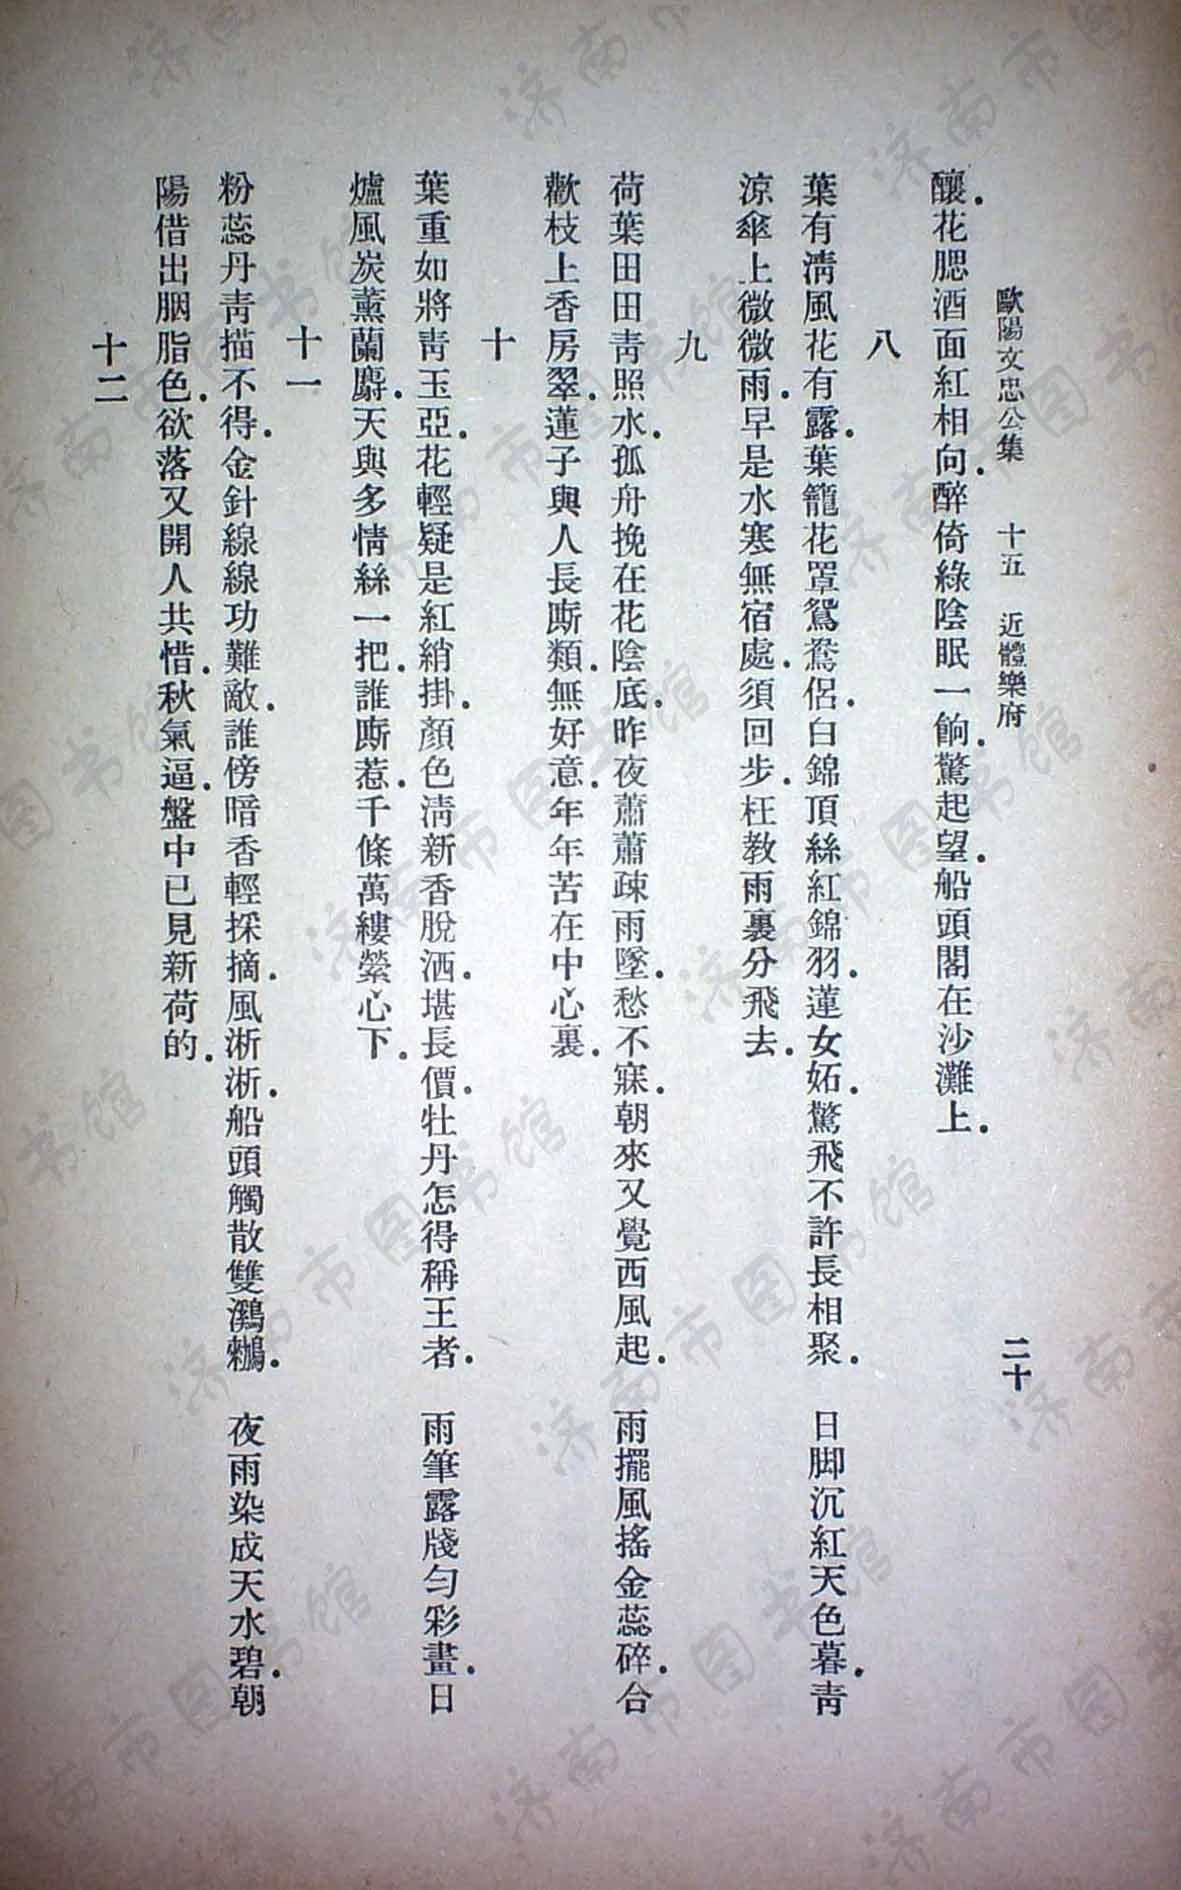 歐陽文忠公集　十五　近體樂府　二十
釀．花腮酒面紅相向．醉倚綠陰眠一餉．驚起望．船頭閣在沙灘上．
八
葉有淸風花有露．葉籠花罩鴛鴦侶．白錦頂絲紅錦羽．蓮女妬．驚飛不許長相聚．　日脚沉紅天色暮．靑
涼傘上微微雨．早是水寒無宿處．須回步．枉教雨裏分飛去．
九
荷葉田田靑照水．孤舟挽在花陰底．昨夜蕭蕭疎雨墜．愁不寐．朝來又覺西風起．　雨擺風搖金蕊碎．合
歡枝上香房翠．蓮子與人長廝類．無好意．年年苦在中心裏．
十
葉重如將靑玉亞．花輕疑是紅綃掛．顏色淸新香脫洒．堪長價．牡丹怎得稱王者．　雨筆露牋勻彩畫．日
爐風炭薰蘭麝．天與多情絲一把．誰廝惹．千條萬縷縈心下．
十一
粉蕊丹靑描不得．金針線線功難敵．誰傍暗香輕採摘．風淅淅．船頭觸散雙鸂鶒．　夜雨染成天水碧．朝
陽借出胭脂色．欲落又開人共惜．秋氣逼．盤中已見新荷的．
十二
济南市图书馆